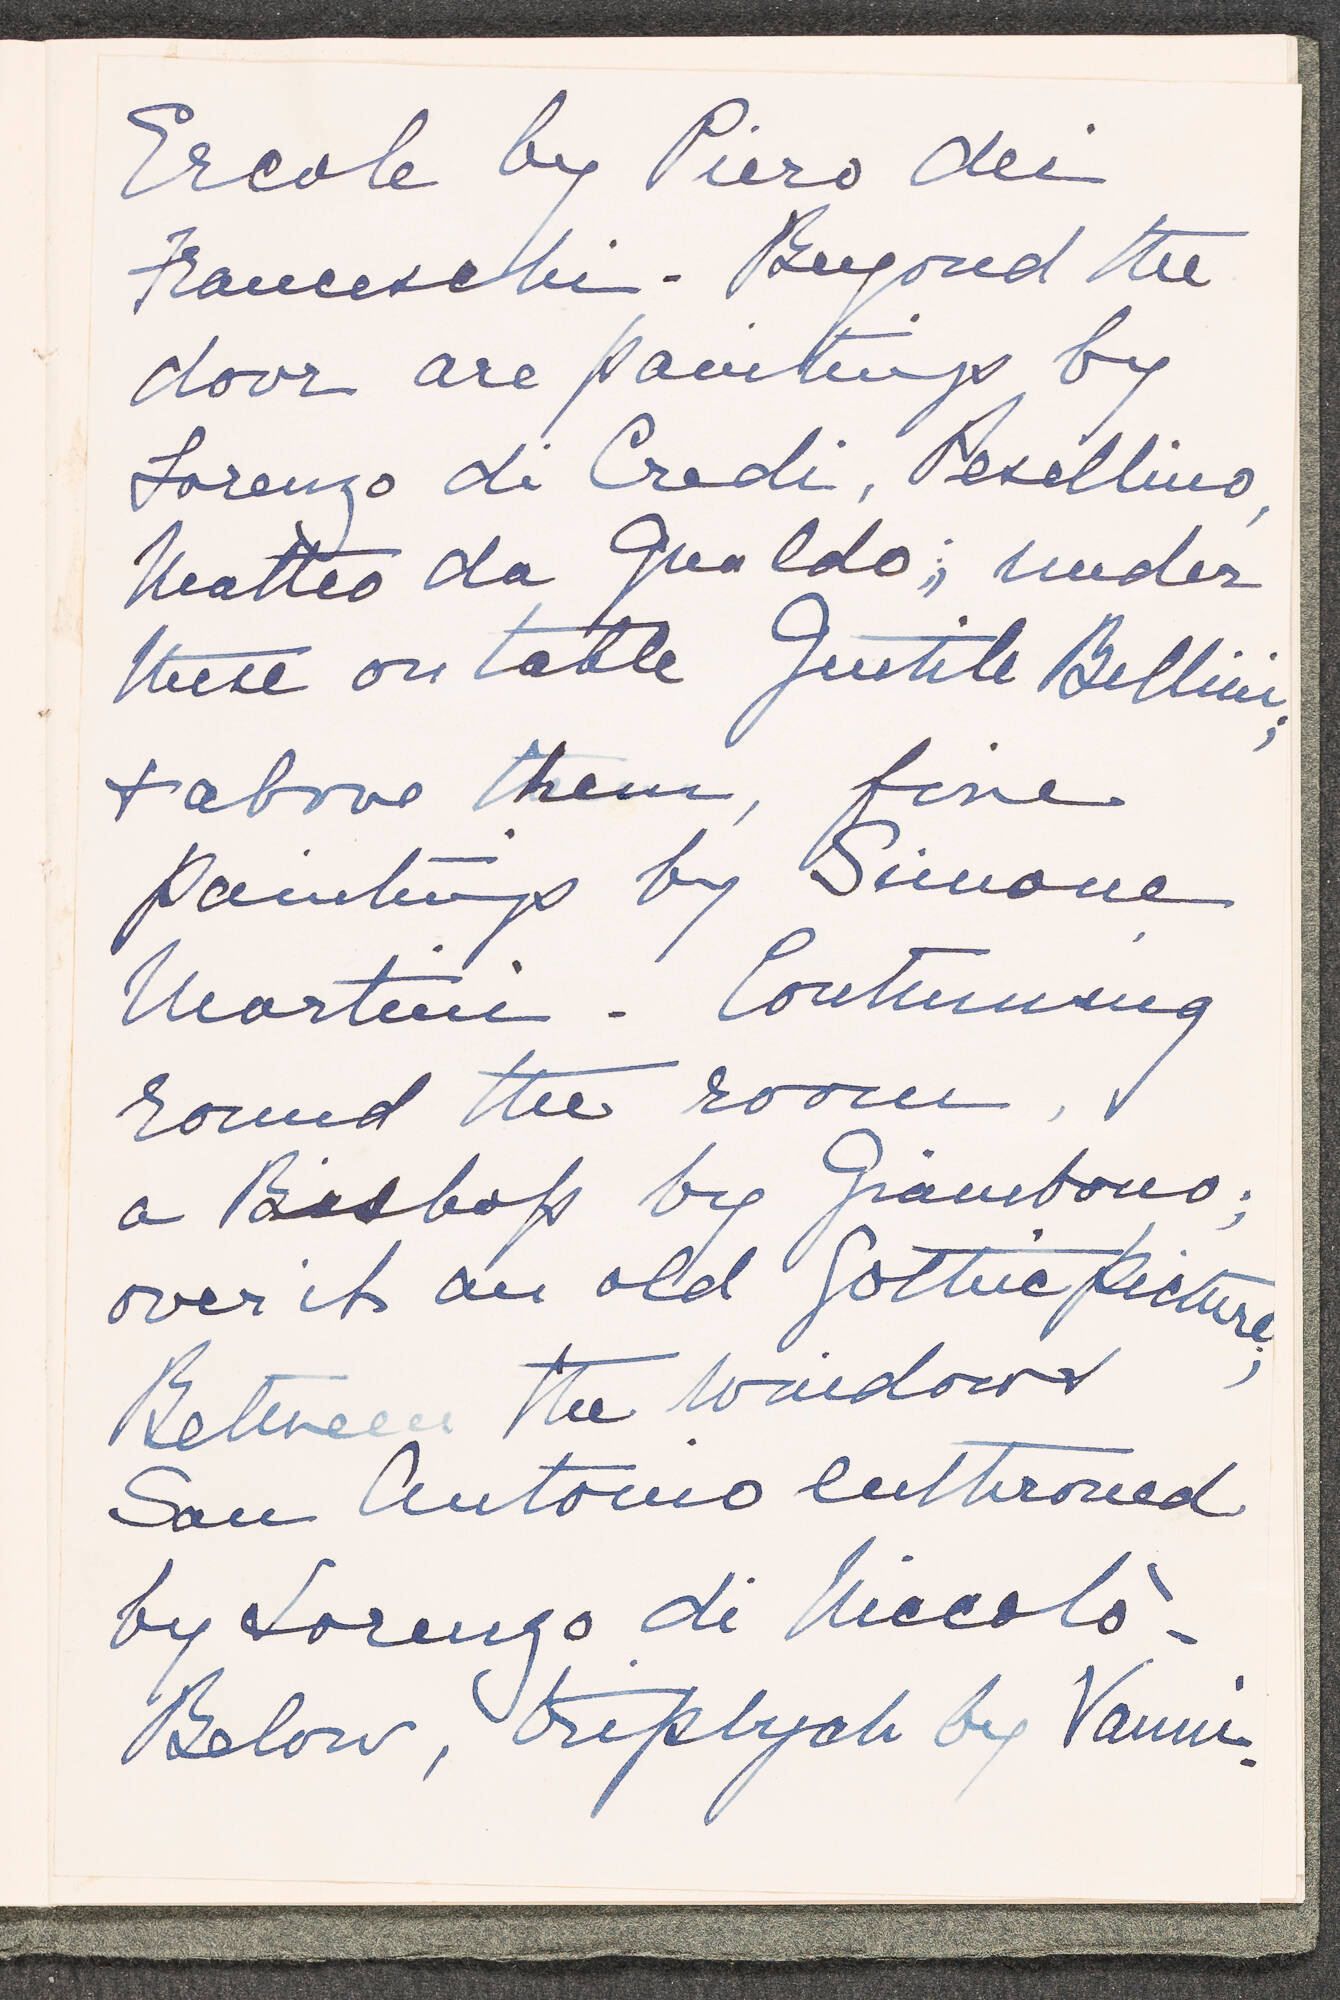 Ercole by Piero dei
Franceschi - Beyond the
door are paintings by
Lorenzo di Credi, Pesellino,
Matteo da Gualdo; under
these on table Gentile Bellini;
+ above them, fine
paintings by Simone
Martini - Continuing
round the room,
a Bishop by Giambono;
over it an old Gothic picture;
Between the windows
San Antonio enthroned
by Lorenzo di Niccolò -
Below, triptych by Vanni -